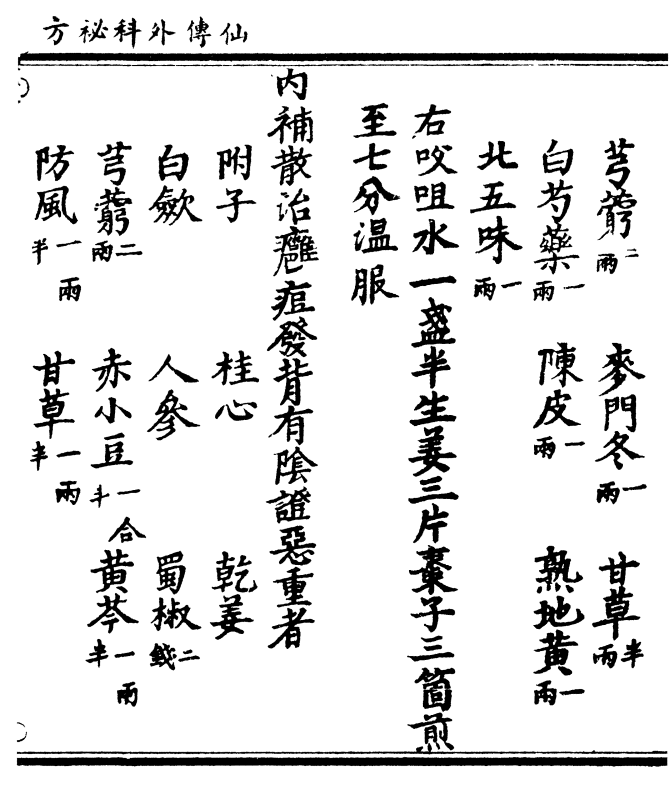 仙傳外科祕方
芎藭二兩 麥門冬一兩 甘草半兩
白芍藥一兩 陳皮一兩 熟地黃一兩
北五味一兩
右㕮咀水一盞半生姜三片棗子三箇煎
至七分溫服
内補散治癰疽發背有陰證惡重者
附子 桂心 乾姜
白歛 人參 蜀椒二錢
芎藭二兩 赤小豆一合半 黃芩一兩半
防風一兩半 甘草一兩半